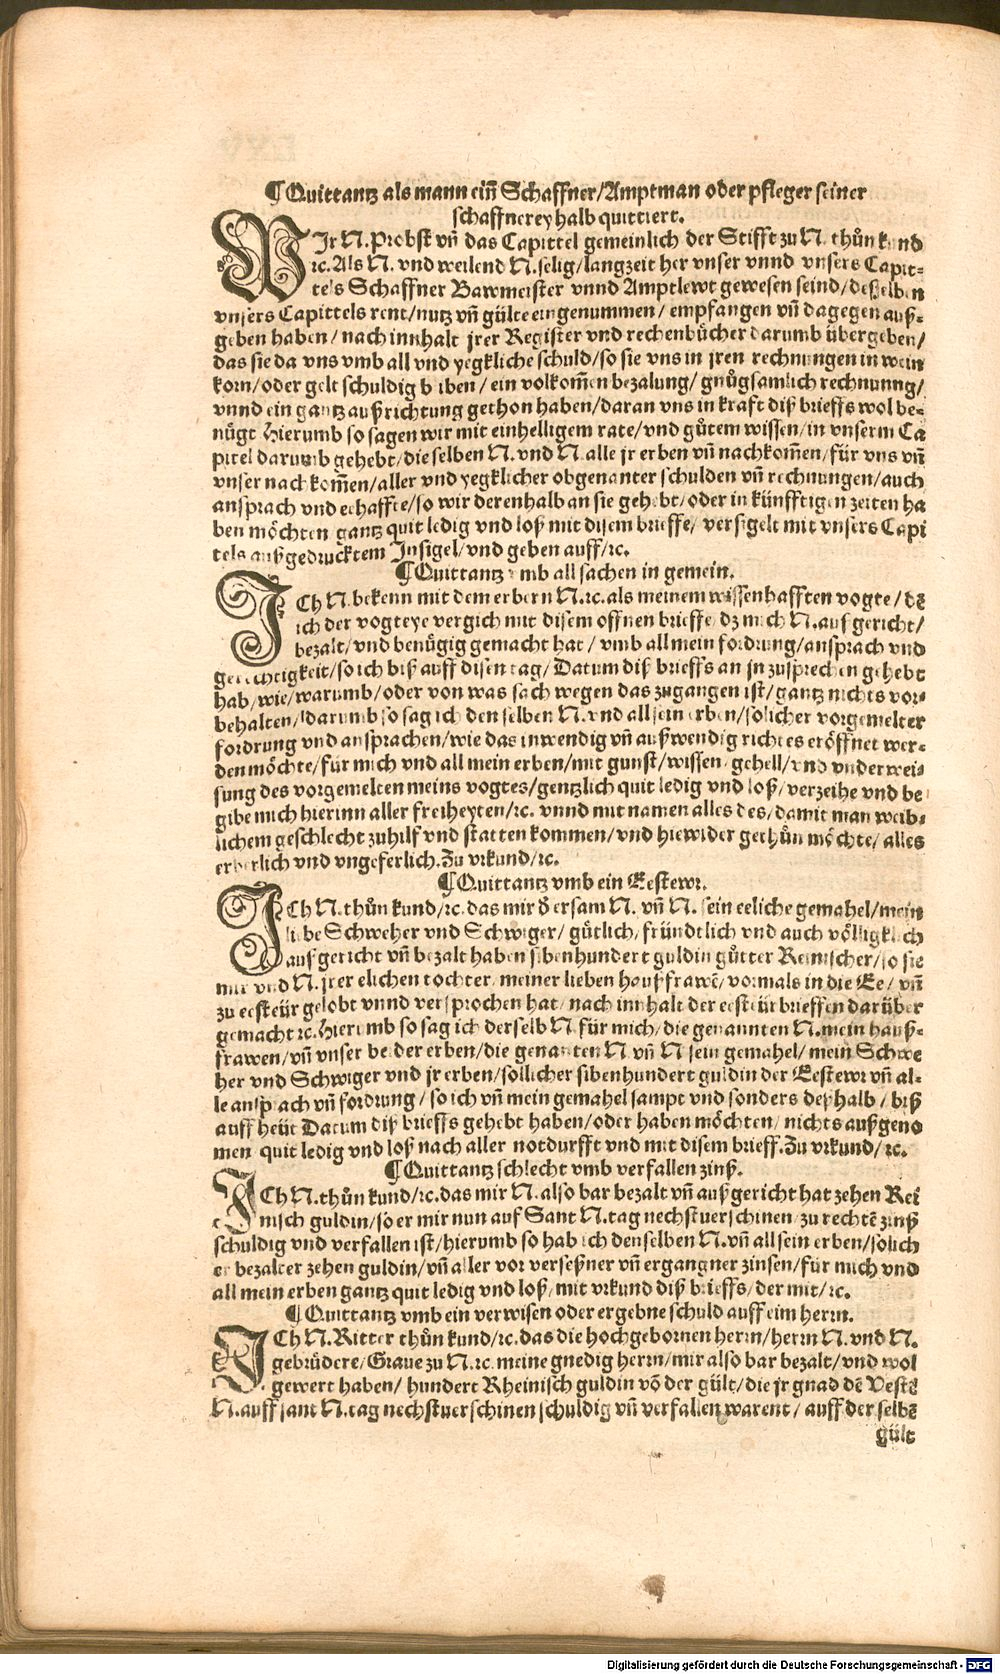 ¶Quittantz als mann ein̄ Schaffner/Amptman oder pfleger seiner
schaffnerey halb quittiert.
WIr N. Probst vn̄ das Capittel gemeinlich der Stifft zu N. thůn kund
ꝛc. Als N. vnd weilend N. selig/langzeit her vnser vnnd vnsers Capit⸗
tels Schaffner Bawmeister vnnd Amptlewt gewesen seind/deßelben
vnsers Capittels rent/nutz vn̄ gülte eingenummen/empfangen vn̄ dagegen auß⸗
geben haben/nach innhalt jrer Register vnd rechenbücher darumb übergeben/
das sie da vns vmb all vnd yegkliche schuld/so sie vns in jren rechnungen in wein
korn/oder gelt schuldig bliben/ein volkom̄en bezalung/gnůgsamlich rechnunng/
vnnd ein gantz außrichtung gethon haben/daran vns in kraft diß brieffs wol be⸗
nügt Hierumb so sagen wir mit einhelligem rate/vnd gůtem wissen/in vnserm Ca
pitel darumb gehebt/die selben N. vnd N. alle jr erben vn̄ nachkom̄en/für vns vn̄
vnser nachkom̄en/aller vnd yegklicher obgenanter schulden vn̄ rechnungen/auch
ansprach vnd eehaffte/so wir derenhalb an sie gehebt/oder in künfftigen zeiten ha
ben möchten/gantz quit ledig vnd loß mit disem brieffe/versigelt mit vnsers Capi
tels außgedrucktem Insigel/vnd geben auff/ꝛc.
¶Quittantz vmb all sachen in gemein.
ICh N. bekenn mit dem erbern N. ꝛc. als meinem wissenhafften vogte/dē
ich der vogteye vergich mit disem offnen brieffe/dz mich N. auß gericht/
bezalt/vnd benügig gemacht hat/vmb all mein fordrung/ansprach vnd
gerechtigkeit/so ich biß auff disen tag/Datum diß brieffs an jn zusprechen gehebt
hab/wie/warumb/oder von was sach wegen das zugangen ist/gantz nichts vor⸗
behalten/darumb so sag ich den selben N. vnd all sein erben/solicher vorgemelter
fordrung vnd ansprachen/wie das inwendig vn̄ außwendig richtes eröffnet wer⸗
den möchte/für mich vnd all mein erben/mit gunst/wissen/gehell/vnd vnderwei⸗
sung des vorgemelten meins vogtes/gentzlich quit ledig vnd loß/verzeihe vnd be
gibe mich hierinn aller freiheyten/ꝛc. vnnd mit namen alles des/damit man weib⸗
lichem geschlecht zuhilf vnd statten kommen/vnd hiewider gethůn möchte/alles
erberlich vnd vngeferlich. Zu vrkund/ꝛc.
¶Quittantz vmb ein Eestewr.
ICh N. thůn kund/ꝛc. das mir d̄ ersam N. vn̄ N. sein eeliche gemahel/mein
liebe Schweher vnd Schwiger/gůtlich/fründtlich vnd auch völligklich
auß gericht vn̄ bezalt haben sibenhundert guldin gůtter Reinischer/so sie
mir vnd N. jrer elichen tochter/meiner lieben haußfrawē/vormals in die Ee/vn̄
zu eesteür gelobt vnnd versprochen hat/nach innhalt der eesteür brieffen darüber
gemacht ꝛc. Hierumb so sag ich derselb N. für mich/die genannten N. mein hauß⸗
frawen/vn̄ vnser beider erben/die genanten N. vn̄ N sein gemahel/mein Schwe
her vnd Schwiger vnd jr erben/sollicher sibenhundert guldin der Eestewr vn̄ al⸗
le ansprach vn̄ fordrung/so ich vn̄ mein gemahel sampt vnd sonders deßhalb/biß
auff heüt Datum diß brieffs gehebt haben/oder haben möchten/nichts außgeno
men/quit ledig vnd loß nach aller notdurfft vnd mit disem brieff. Zu vrkund/ꝛc.
¶Quittantz schlecht vmb verfallen zinß.
ICh N. thůn kund/ꝛc. das mir N. also bar bezalt vn̄ auß gericht hat zehen Rei
nisch guldin/so er mir nun auf Sant N. tag nechstuerschinen/zu rechtē zinß
schuldig vnd verfallen ist/hierumb so hab ich denselben N. vn̄ all sein erben/solich
er bezalter zehen guldin/vn̄ aller vor verseßner vn̄ ergangner zinsen/für mich vnd
all mein erben gantz quit ledig vnd loß/mit vrkund diß brieffs/der mit/ꝛc.
¶Quittantz vmb ein verwisen oder ergebne schuld auff eim herrn.
ICh N. Ritter thůn kund/ꝛc. das die hochgebornen herrn/herrn N. vnd N.
gebrüdere/Graue zu N. ꝛc. meine gnedig herrn/mir also bar bezalt/vnd wol
gewert haben/hundert Rheinisch guldin vō der gült/die jr gnad dē Vestē
N. auff sant N. tag nechstuerschinen schuldig vn̄ verfallen warent/auff der selbē
gült
Digitalisierung gefördert durch die Deutsche Forschungsgemeinschaft - DFG